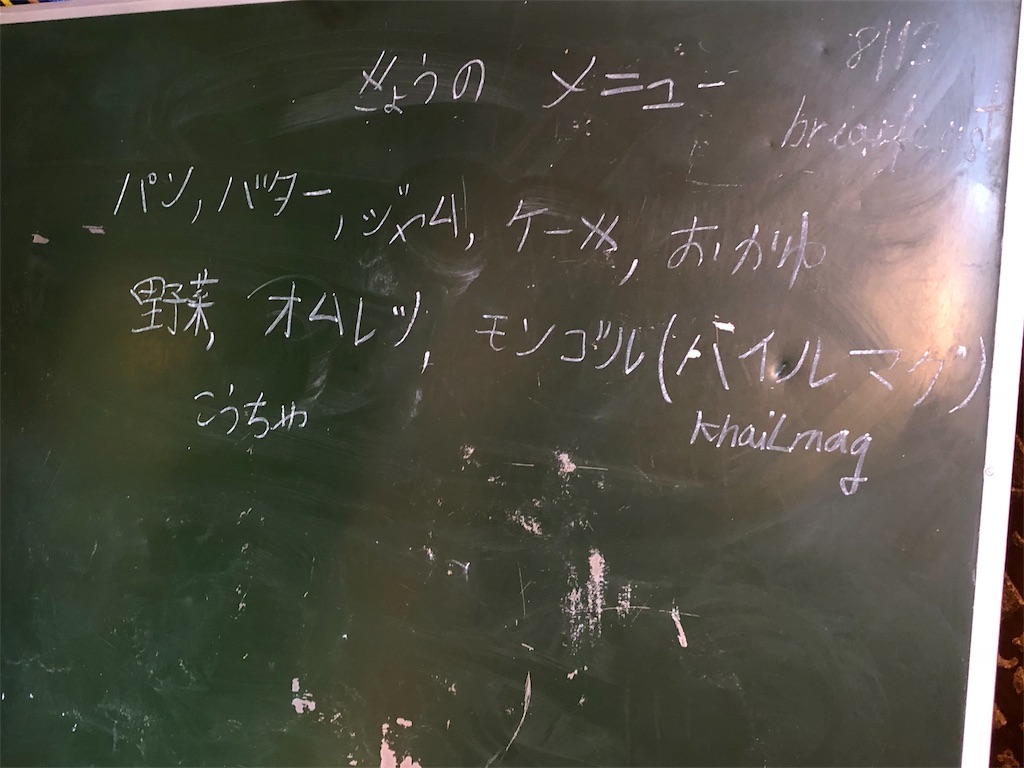 8/13
きょうの メニュー
breakfast
パン, バター, ジャム, ケーキ, おかゆ
野菜, オムレツ, モンゴル(ハイルマグ)
こうちゃ khailmag